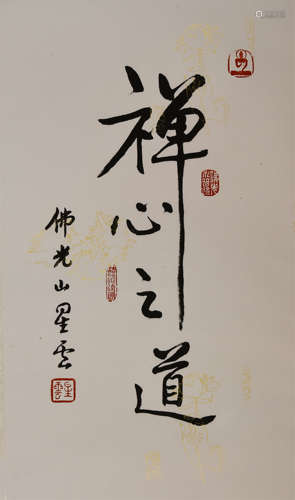 禅心之道
佛光山星雲